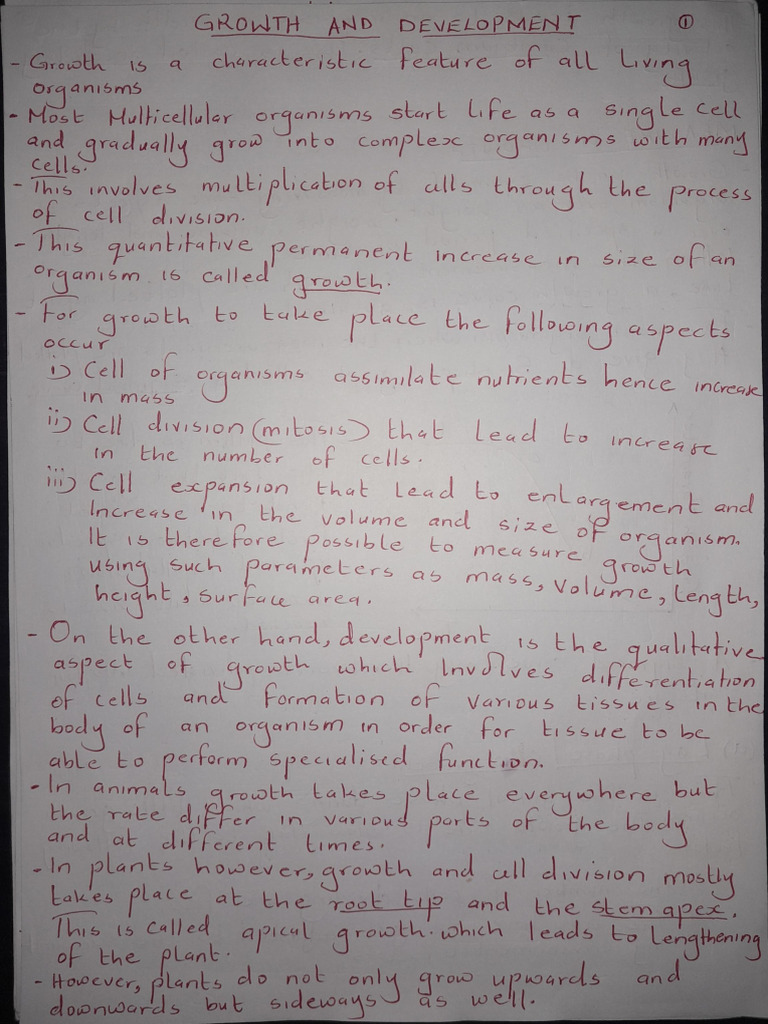 GROWTH AND DEVELOPMENT ①
- Growth is a characteristic feature of all living
organisms
- Most Multicellular organisms start life as a single cell
and gradually grow into complex organisms with many
cells.
- This involves multiplication of cells through the process
of cell division.
- This quantitative permanent increase in size of an
organism is called growth.
- For growth to take place the following aspects
occur
i) Cell of organisms assimilate nutrients hence increase
in mass
ii) Cell division (mitosis) that lead to increase
in the number of cells.
iii) Cell expansion that lead to enlargement and
Increase in the volume and size of organism.
It is therefore possible to measure growth
using such parameters as mass, volume, length,
height, surface area.
- On the other hand, development is the qualitative
aspect of growth which involves differentiation
of cells and formation of various tissues in the
body of an organism in order for tissue to be
able to perform specialised function.
- In animals growth takes place everywhere but
the rate differ in various parts of the body
and at different times.
- In plants however, growth and cell division mostly
takes place at the root tip and the stem apex.
This is called apical growth. which leads to lengthening
of the plant.
- However, plants do not only grow upwards and
downwards but sideways as well.